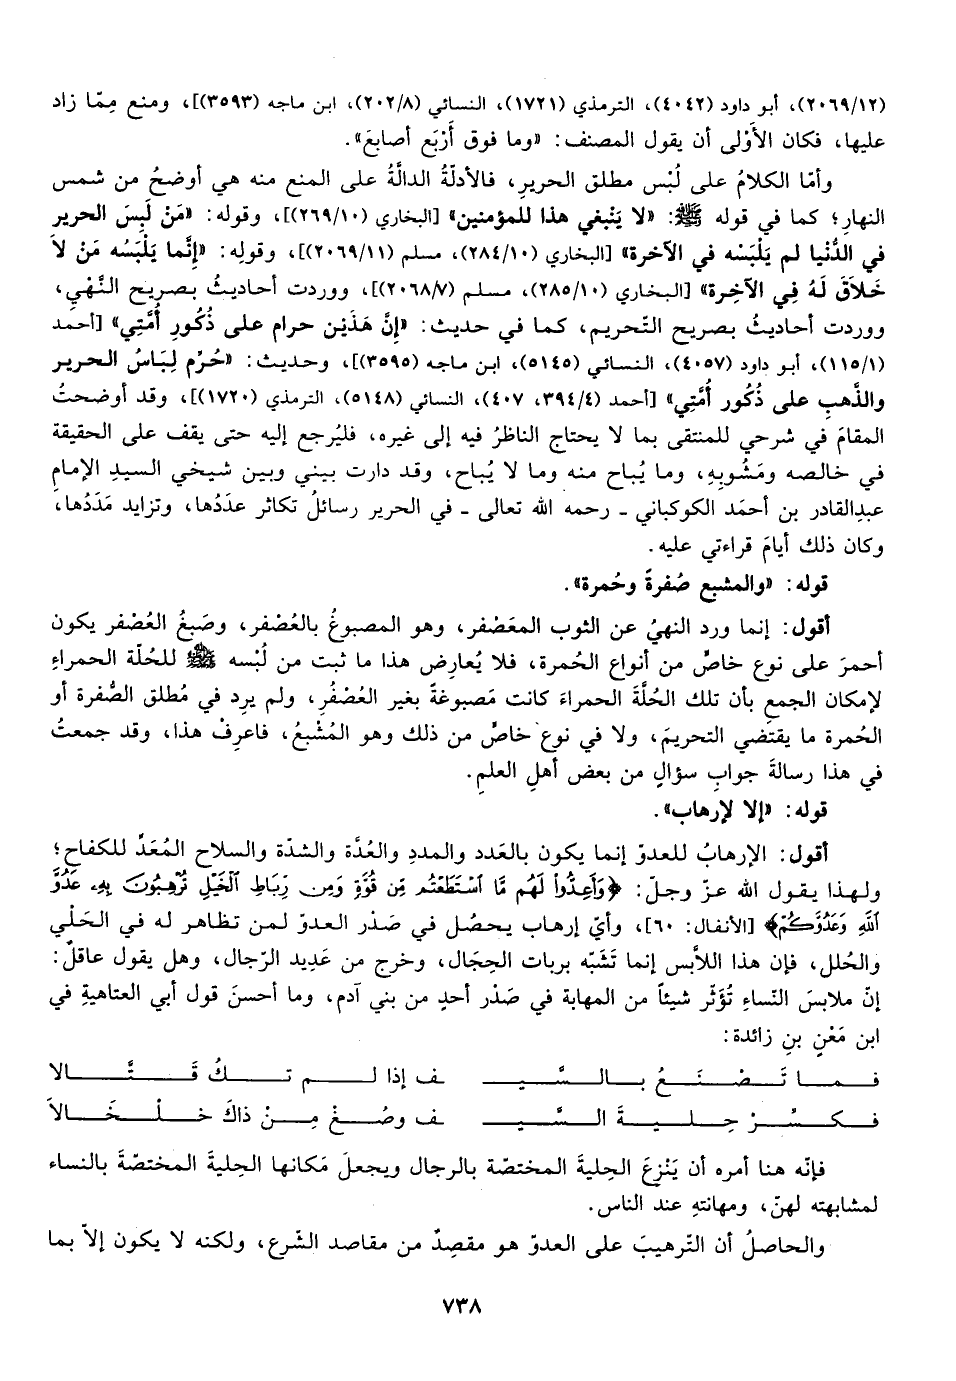 (٢٠٦٩/١٢)، أبو داود (٤٠٤٢)، الترمذي (١٧٢١)، النسائي (٢٠٢/٨)، ابن ماجه (٣٥٩٣)]، ومنع مِمّا زاد
عليها، فكان الأَوْلى أن يقول المصنف: «وما فوق أَرْبَع أصابعَ».
وأمّا الكلامُ على لُبْس مطلق الحريرِ، فالأدلّةُ الدالَّةُ على المنع منه هي أوضحُ من شمس
النهارِ؛ كما في قوله ﷺ: «لا يَنْبغي هذا للمؤمنين» [البخاري (٢٦٩/١٠)]، وقوله: «مَنْ لَبِسَ الحرير
في الدُّنْيا لم يَلْبَسْه في الآخرة» [البخاري (٢٨٤/١٠)، مسلم (٢٠٦٩/١١)]، وقولِه: «إِنَّما يَلْبَسُه مَنْ لاَ
خَلاَقَ لَهُ فِي الآخِرة» [البخاري (٢٨٥/١٠)، مسلم (٢٠٦٨/٧)]، ووردت أحاديثُ بصريح النَّهْيِ،
ووردت أحاديثُ بصريح التّحريم، كما في حديث: «إِنَّ هَذَيْن حرام على ذُكُورِ أُمَّتِي» [أحمد
(١١٥/١)، أبو داود (٤٠٥٧)، النسائي (٥١٤٥)، ابن ماجه (٣٥٩٥)]، وحديث: «حُرِّم لِبَاسُ الحرير
والذَّهبِ على ذُكُور أُمَّتِي» [أحمد (٣٩٤/٤، ٤٠٧)، النسائي (٥١٤٨)، الترمذي (١٧٢٠)]، وقد أوضحتُ
المقامَ في شرحي للمنتقى بما لا يحتاج الناظرُ فيه إلى غيره، فليُرجع إليه حتى يقف على الحقيقة
في خالصه ومَشُوبِهِ، وما يُباح منه وما لا يُباح، وقد دارت بيني وبين شيخي السيدِ الإمامِ
عبدِالقادر بن أحمَد الكوكباني ـ رحمه الله تعالى ـ في الحرير رسائلُ تكاثر عدَدُها، وتزايد مَدَدُها،
وكان ذلك أيامَ قراءتي عليه.
قوله: «والمشبع صُفرةً وحُمرة».
أقول: إنما ورد النهيُ عن الثوب المعَصْفر، وهو المصبوغُ بالعُصْفر، وصَبغُ العُصْفر يكون
أحمرَ على نوع خاصٍّ من أنواع الحُمرة، فلا يُعارِض هذا ما ثبت من لُبْسه ﷺ للحُلّة الحمراءِ
لإمكان الجمعِ بأن تلك الحُلَّةَ الحمراءَ كانت مَصبوغةً بغير العُصْفُر، ولم يرِد في مُطلق الصُّفرة أو
الحُمرة ما يقتضي التحريمَ، ولا في نوع خاصٍّ من ذلك وهو المُشْبعُ، فاعرِفْ هذا، وقد جمعتُ
في هذا رسالةَ جوابِ سؤالٍ من بعض أهلِ العلمِ.
قوله: «إلا لإرهاب».
أقول: الإرهابُ للعدوّ إنما يكون بالعَدد والمددِ والعُدَّة والشدّة والسلاح المُعَدِّ للكفاح؛
ولهذا يقول الله عزّ وجلّ: ﴿وَأَعِدُّواْ لَهُم مَّا اسْتَطَعْتُم مِّن قُوَّةٍ وَمِن رِّبَاطِ الْخَيْلِ تُرْهِبُونَ بِهِۦ عَدُوَّ
اللَّهِ وَعَدُوَّكُمْ﴾ [الأنفال: ٦٠]، وأيّ إرهاب يحصُل في صَدْر العدوّ لمن تظاهر له في الحَلْي
والحُلل، فإن هذا اللاَّبس إنما تَشَبّه بربات الحِجَال، وخرج من عَدِيد الرّجال، وهل يقول عاقلٌ:
إنّ ملابسَ النّساء تُؤَثّر شيئاً من المهابة في صَدْر أحدٍ من بني آدم، وما أحسنَ قول أبي العتاهيةِ في
ابن مَعْنٍ بنِ زائدة:
فـمـا تَـصْـنَـعُ بـالـسَّـيـ ـف إذا لـم تـكُ قَـتَّـالا
فـكـسِّـرْ حِـلـيـةَ الـسَّـيـ ـف وصُـغْ مِـنْ ذاكَ خـلْـخَـالاَ
فإنّه هنا أمره أن يَنْزِعَ الحِليةَ المختصّة بالرجال ويجعلَ مَكانها الحِليةَ المختصّةَ بالنساء
لمشابهته لهنّ، ومهانتهِ عند الناس.
والحاصلُ أن التّرهيبَ على العدوّ هو مقصِدٌ من مقاصد الشّرع، ولكنه لا يكون إلاّ بما
٧٣٨